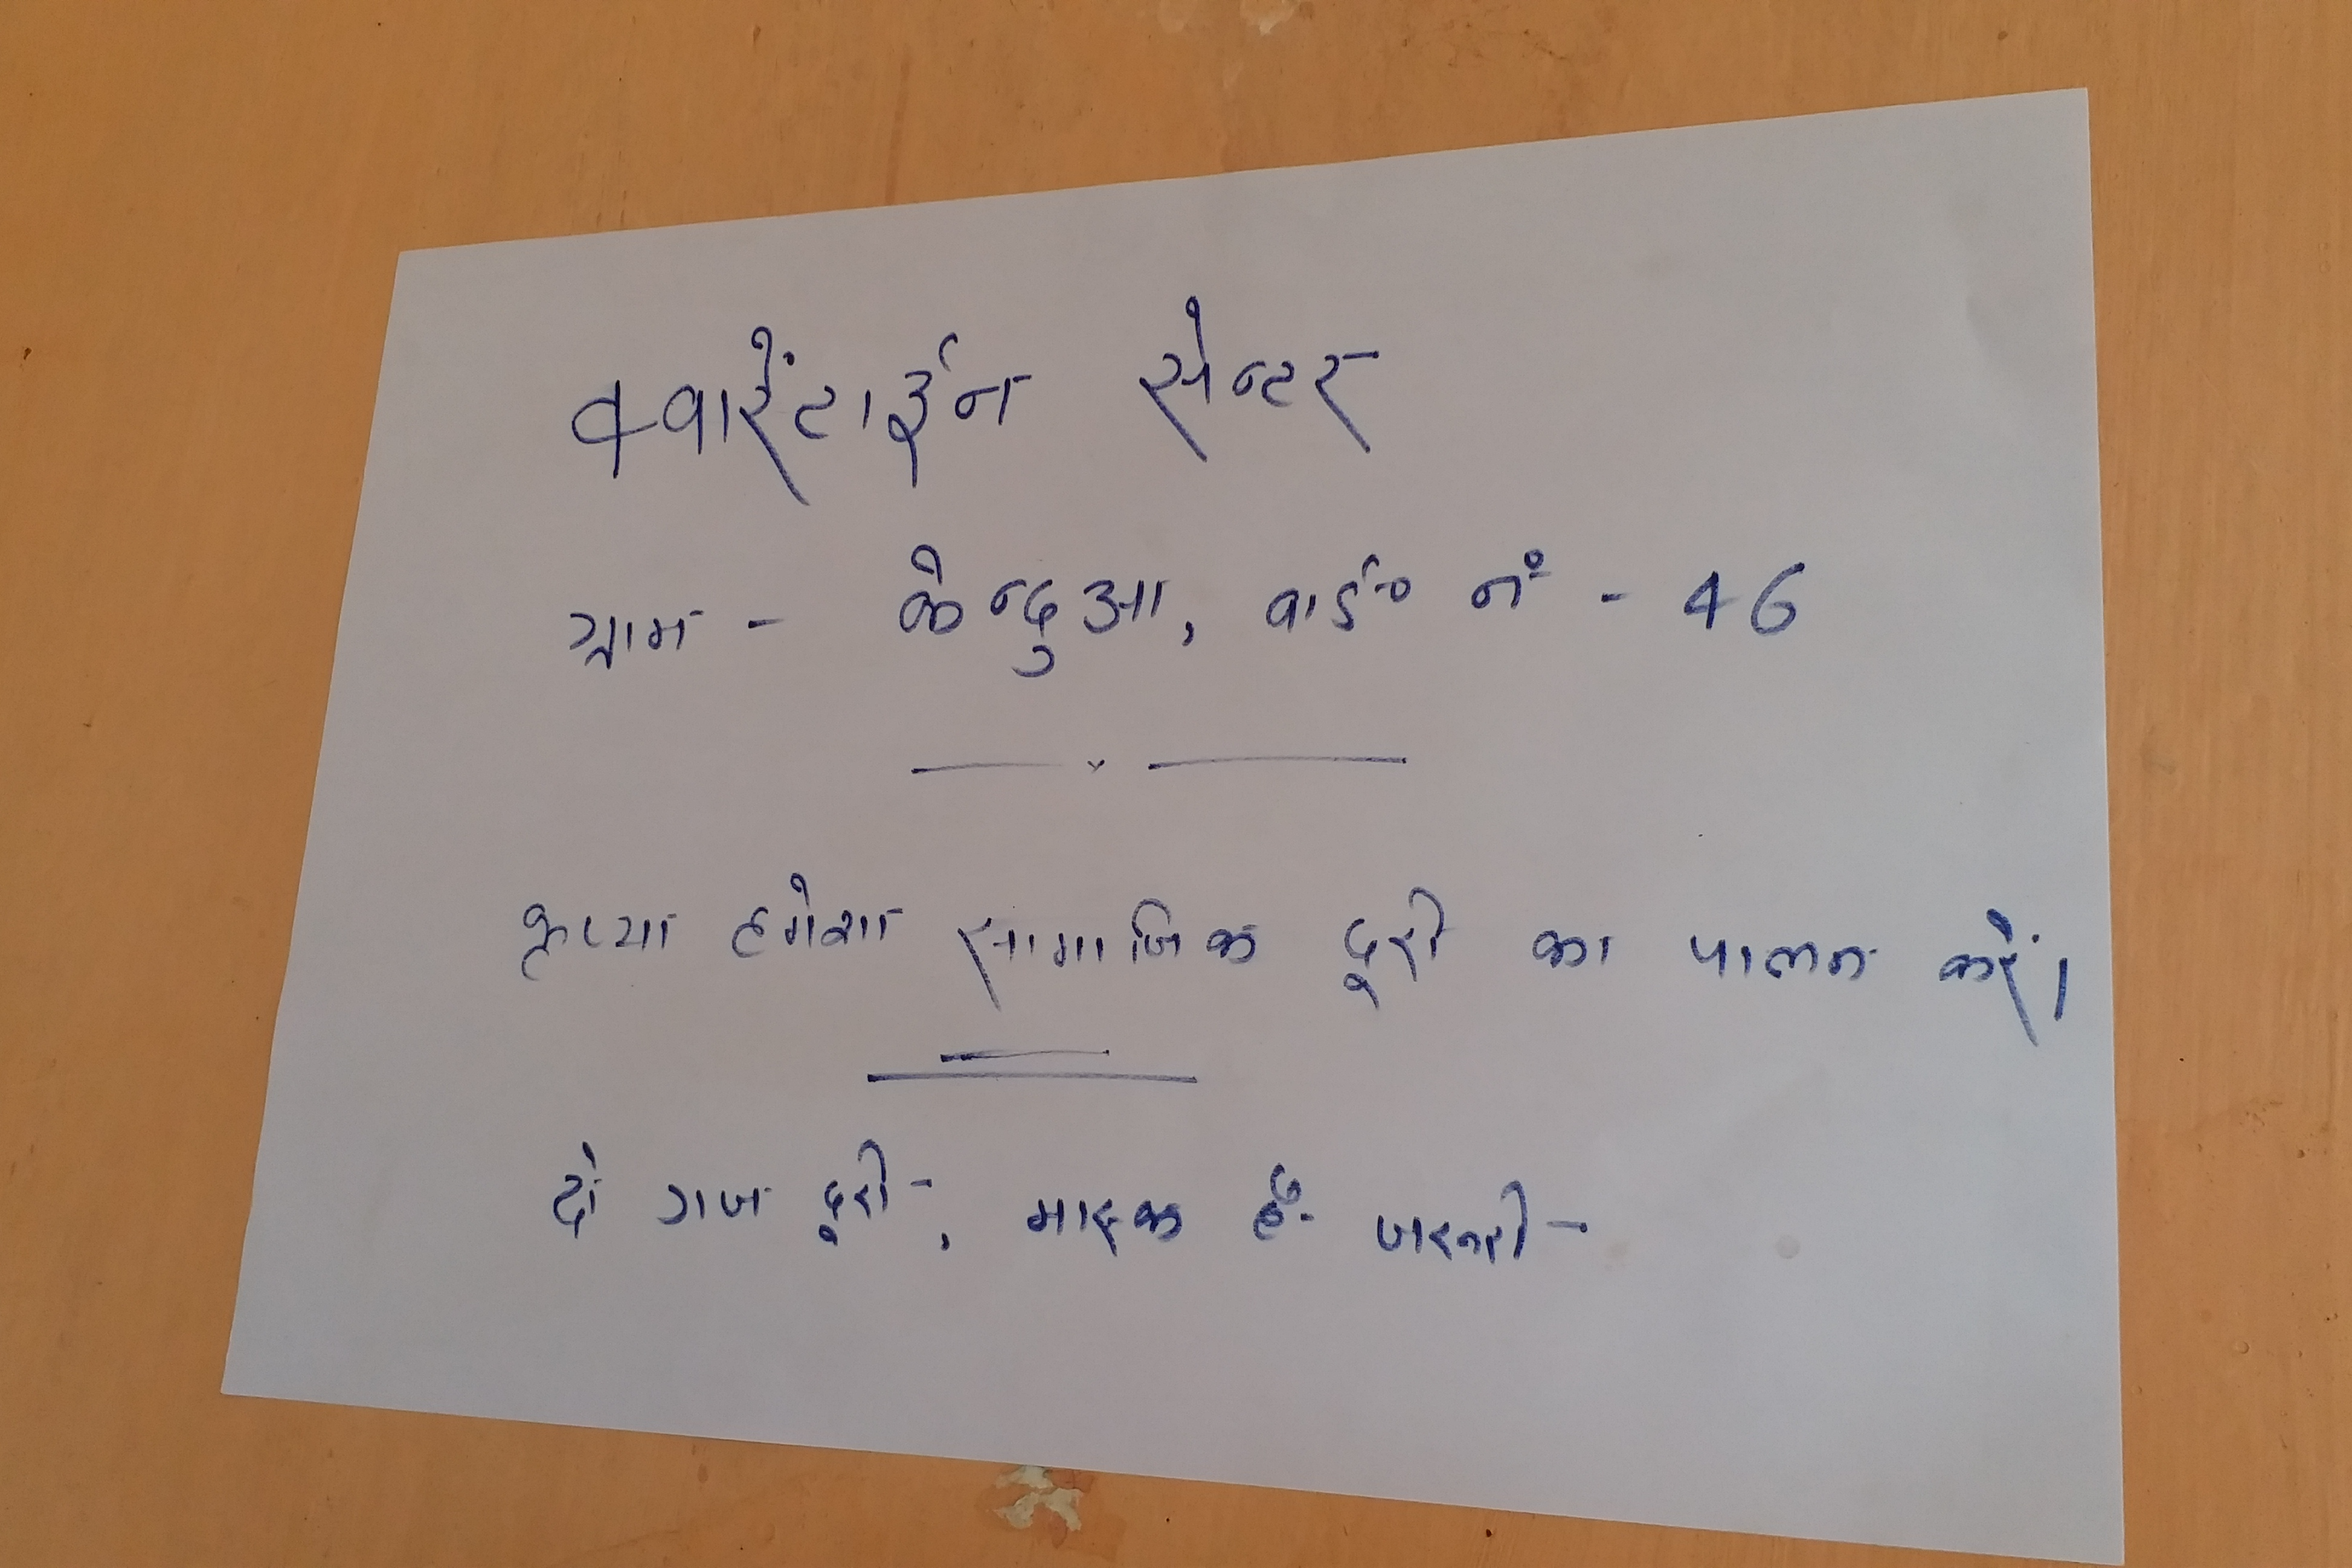 क्वारेंटाईन सेन्टर
ग्राम - केन्दुआ, वार्ड नं० - 46
कृप्या हमेशा सामाजिक दूरी का पालन करें।
दो गज दूरी, मास्क है जरूरी